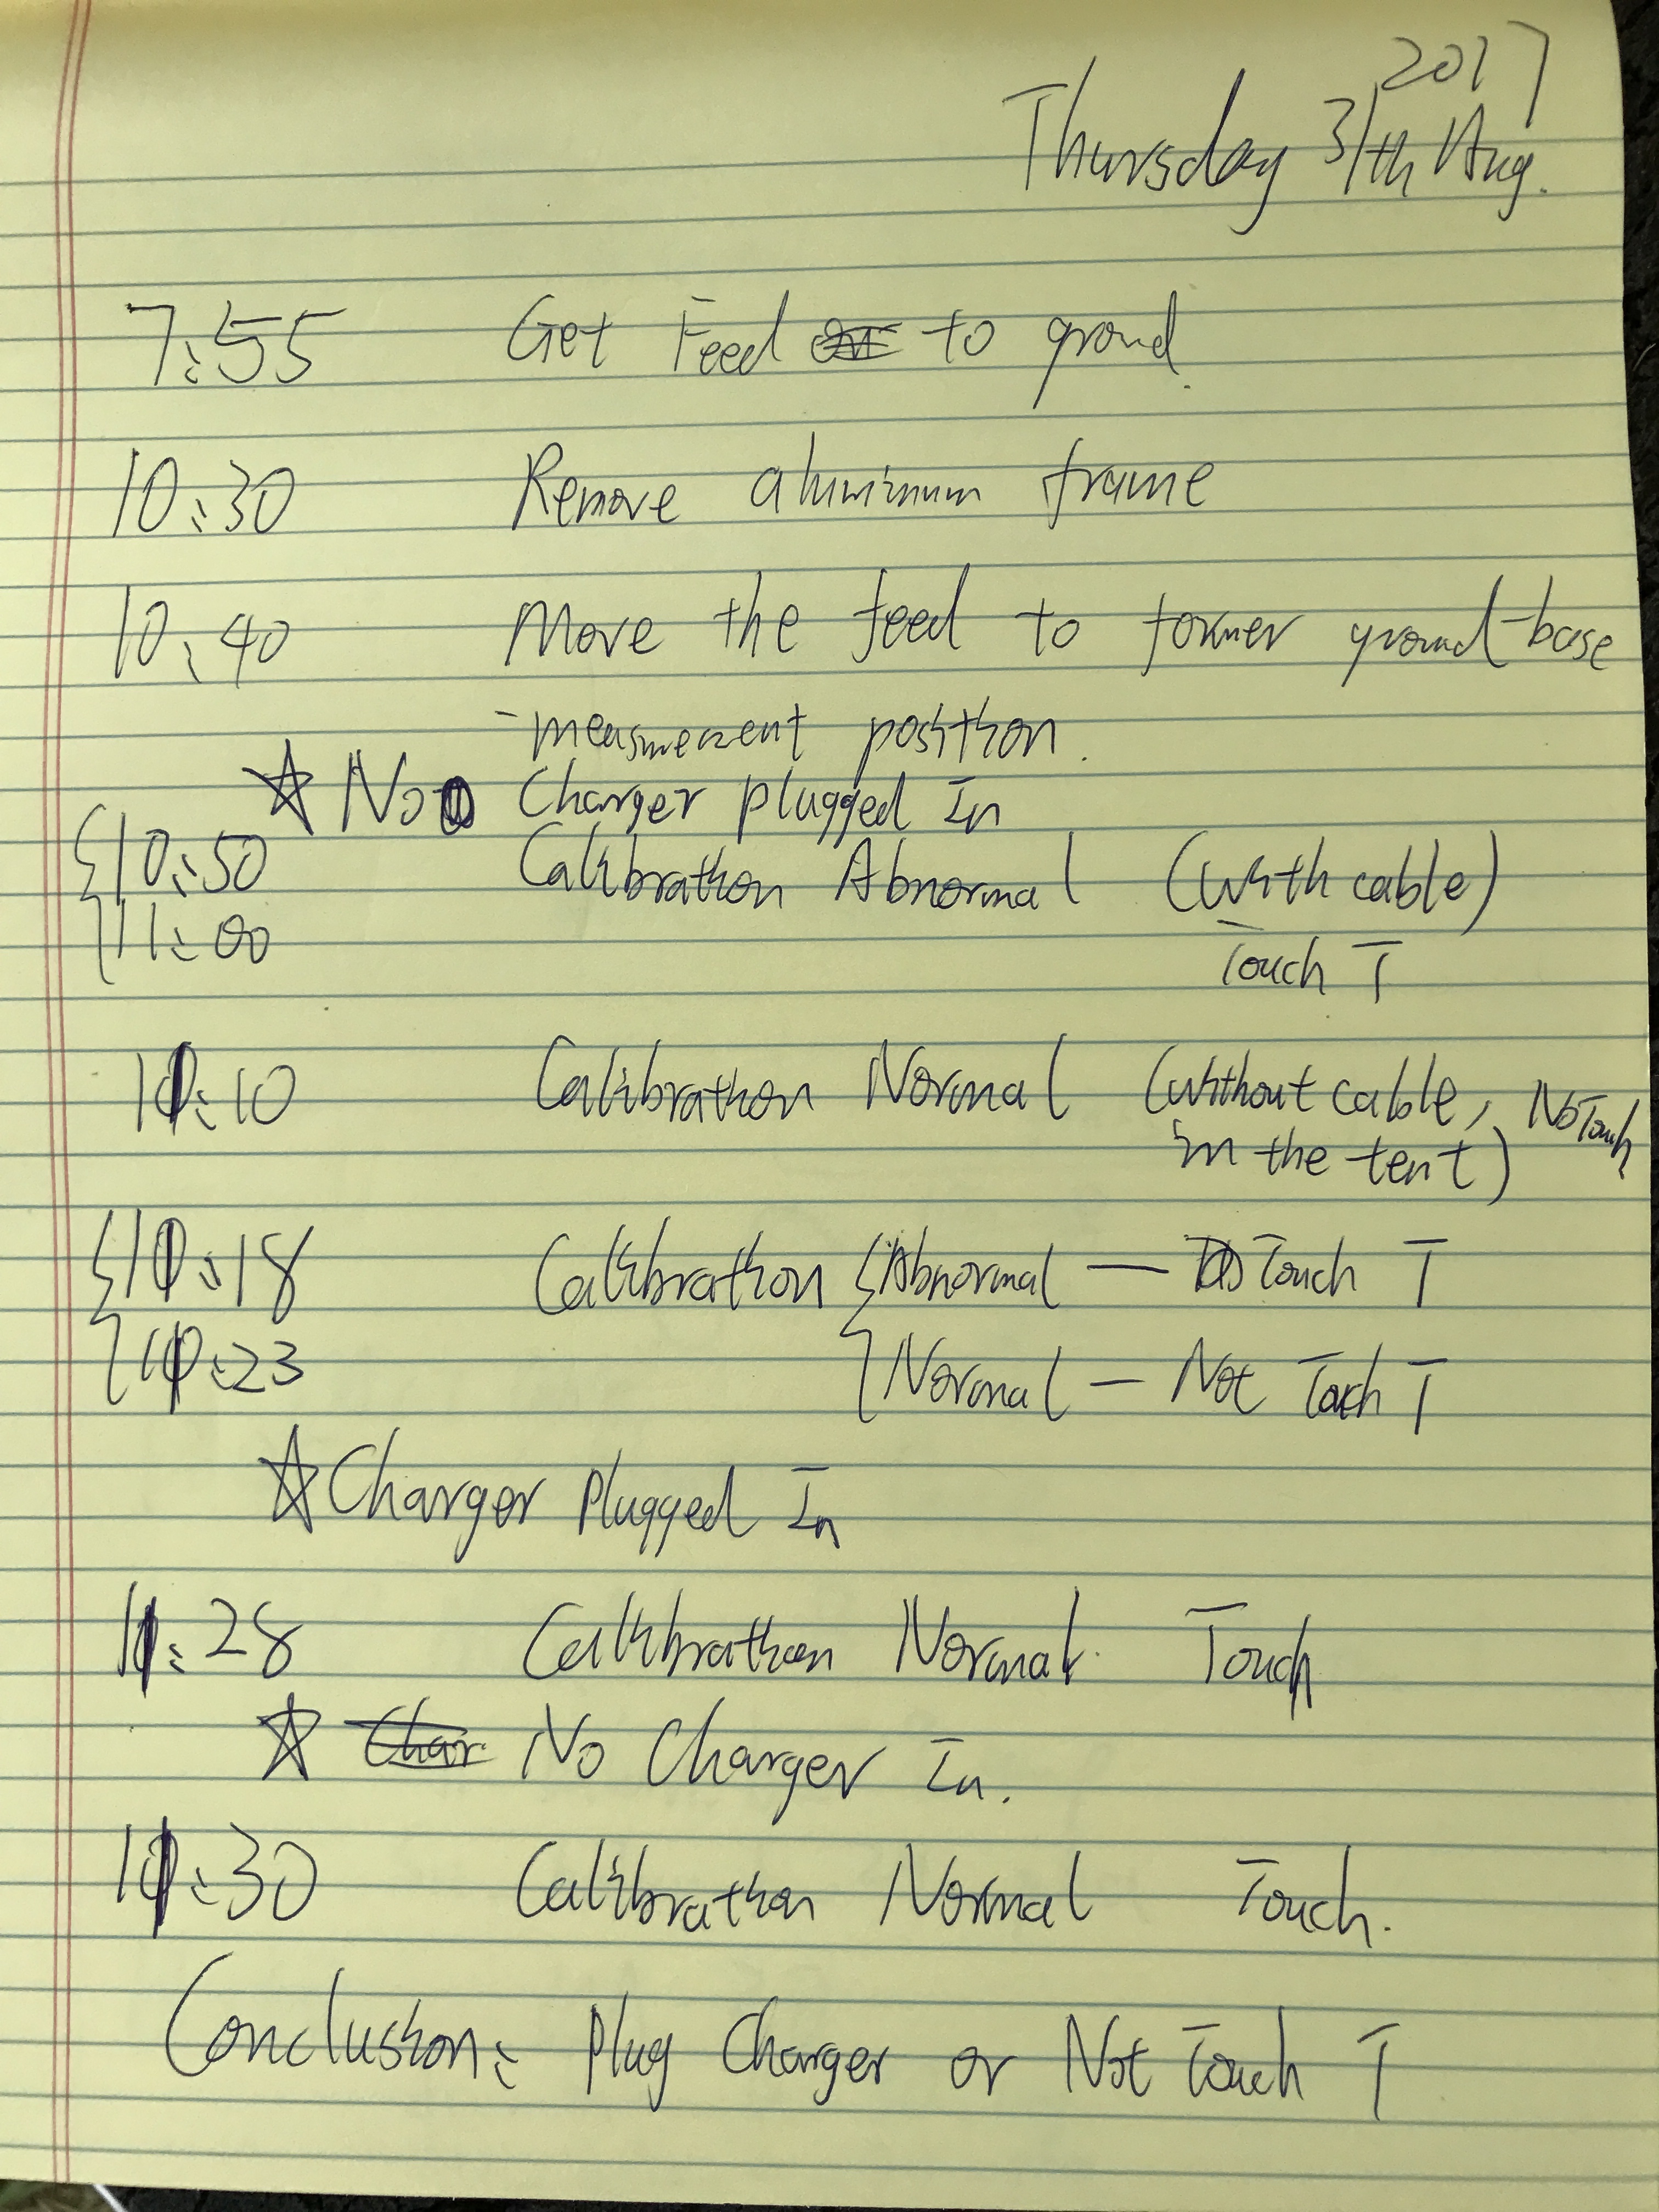 2017
Thursday 31th Aug.
7:55 Get Feed to ground.
10:30 Remove aluminum frame
10:40 Move the feed to former ground-base
-measurement position.
☆ No Charger plugged In
10:50 Calibration Abnormal (with cable)
11:00 Touch T
11:10 Calibration Normal (without cable, No Touch
in the tent)
11:18 Calibration Abnormal — Touch T
11:23 Normal — Not Touch T
☆ Charger Plugged In
11:28 Calibration Normal. Touch
☆ Char No Charger In.
11:30 Calibration Normal Touch.
Conclusion: Plug Charger or Not Touch T